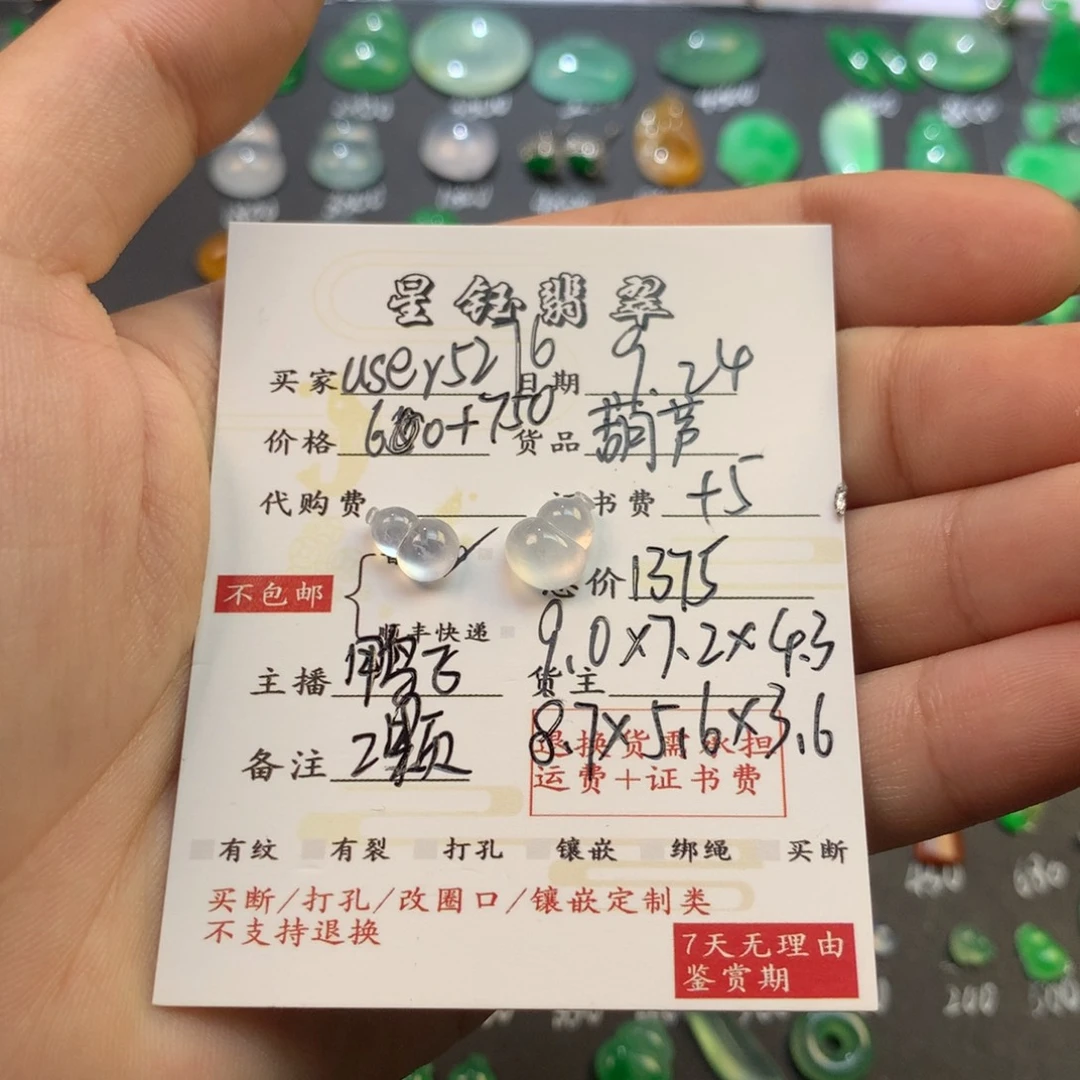 星钰翡翠
买家 user5276 日期 9.24
价格 600+750 货品 葫芦
代购费 证书费 +5
总价 1375
不包邮
顺丰快递
9.0×7.2×4.3
主播 货主
8.7×5.6×3.6
备注 2颗
退换货需承担
运费+证书费
有纹 有裂 打孔 镶嵌 绑绳 买断
买断/打孔/改圈口/镶嵌定制类
不支持退换
7天无理由
鉴赏期
200